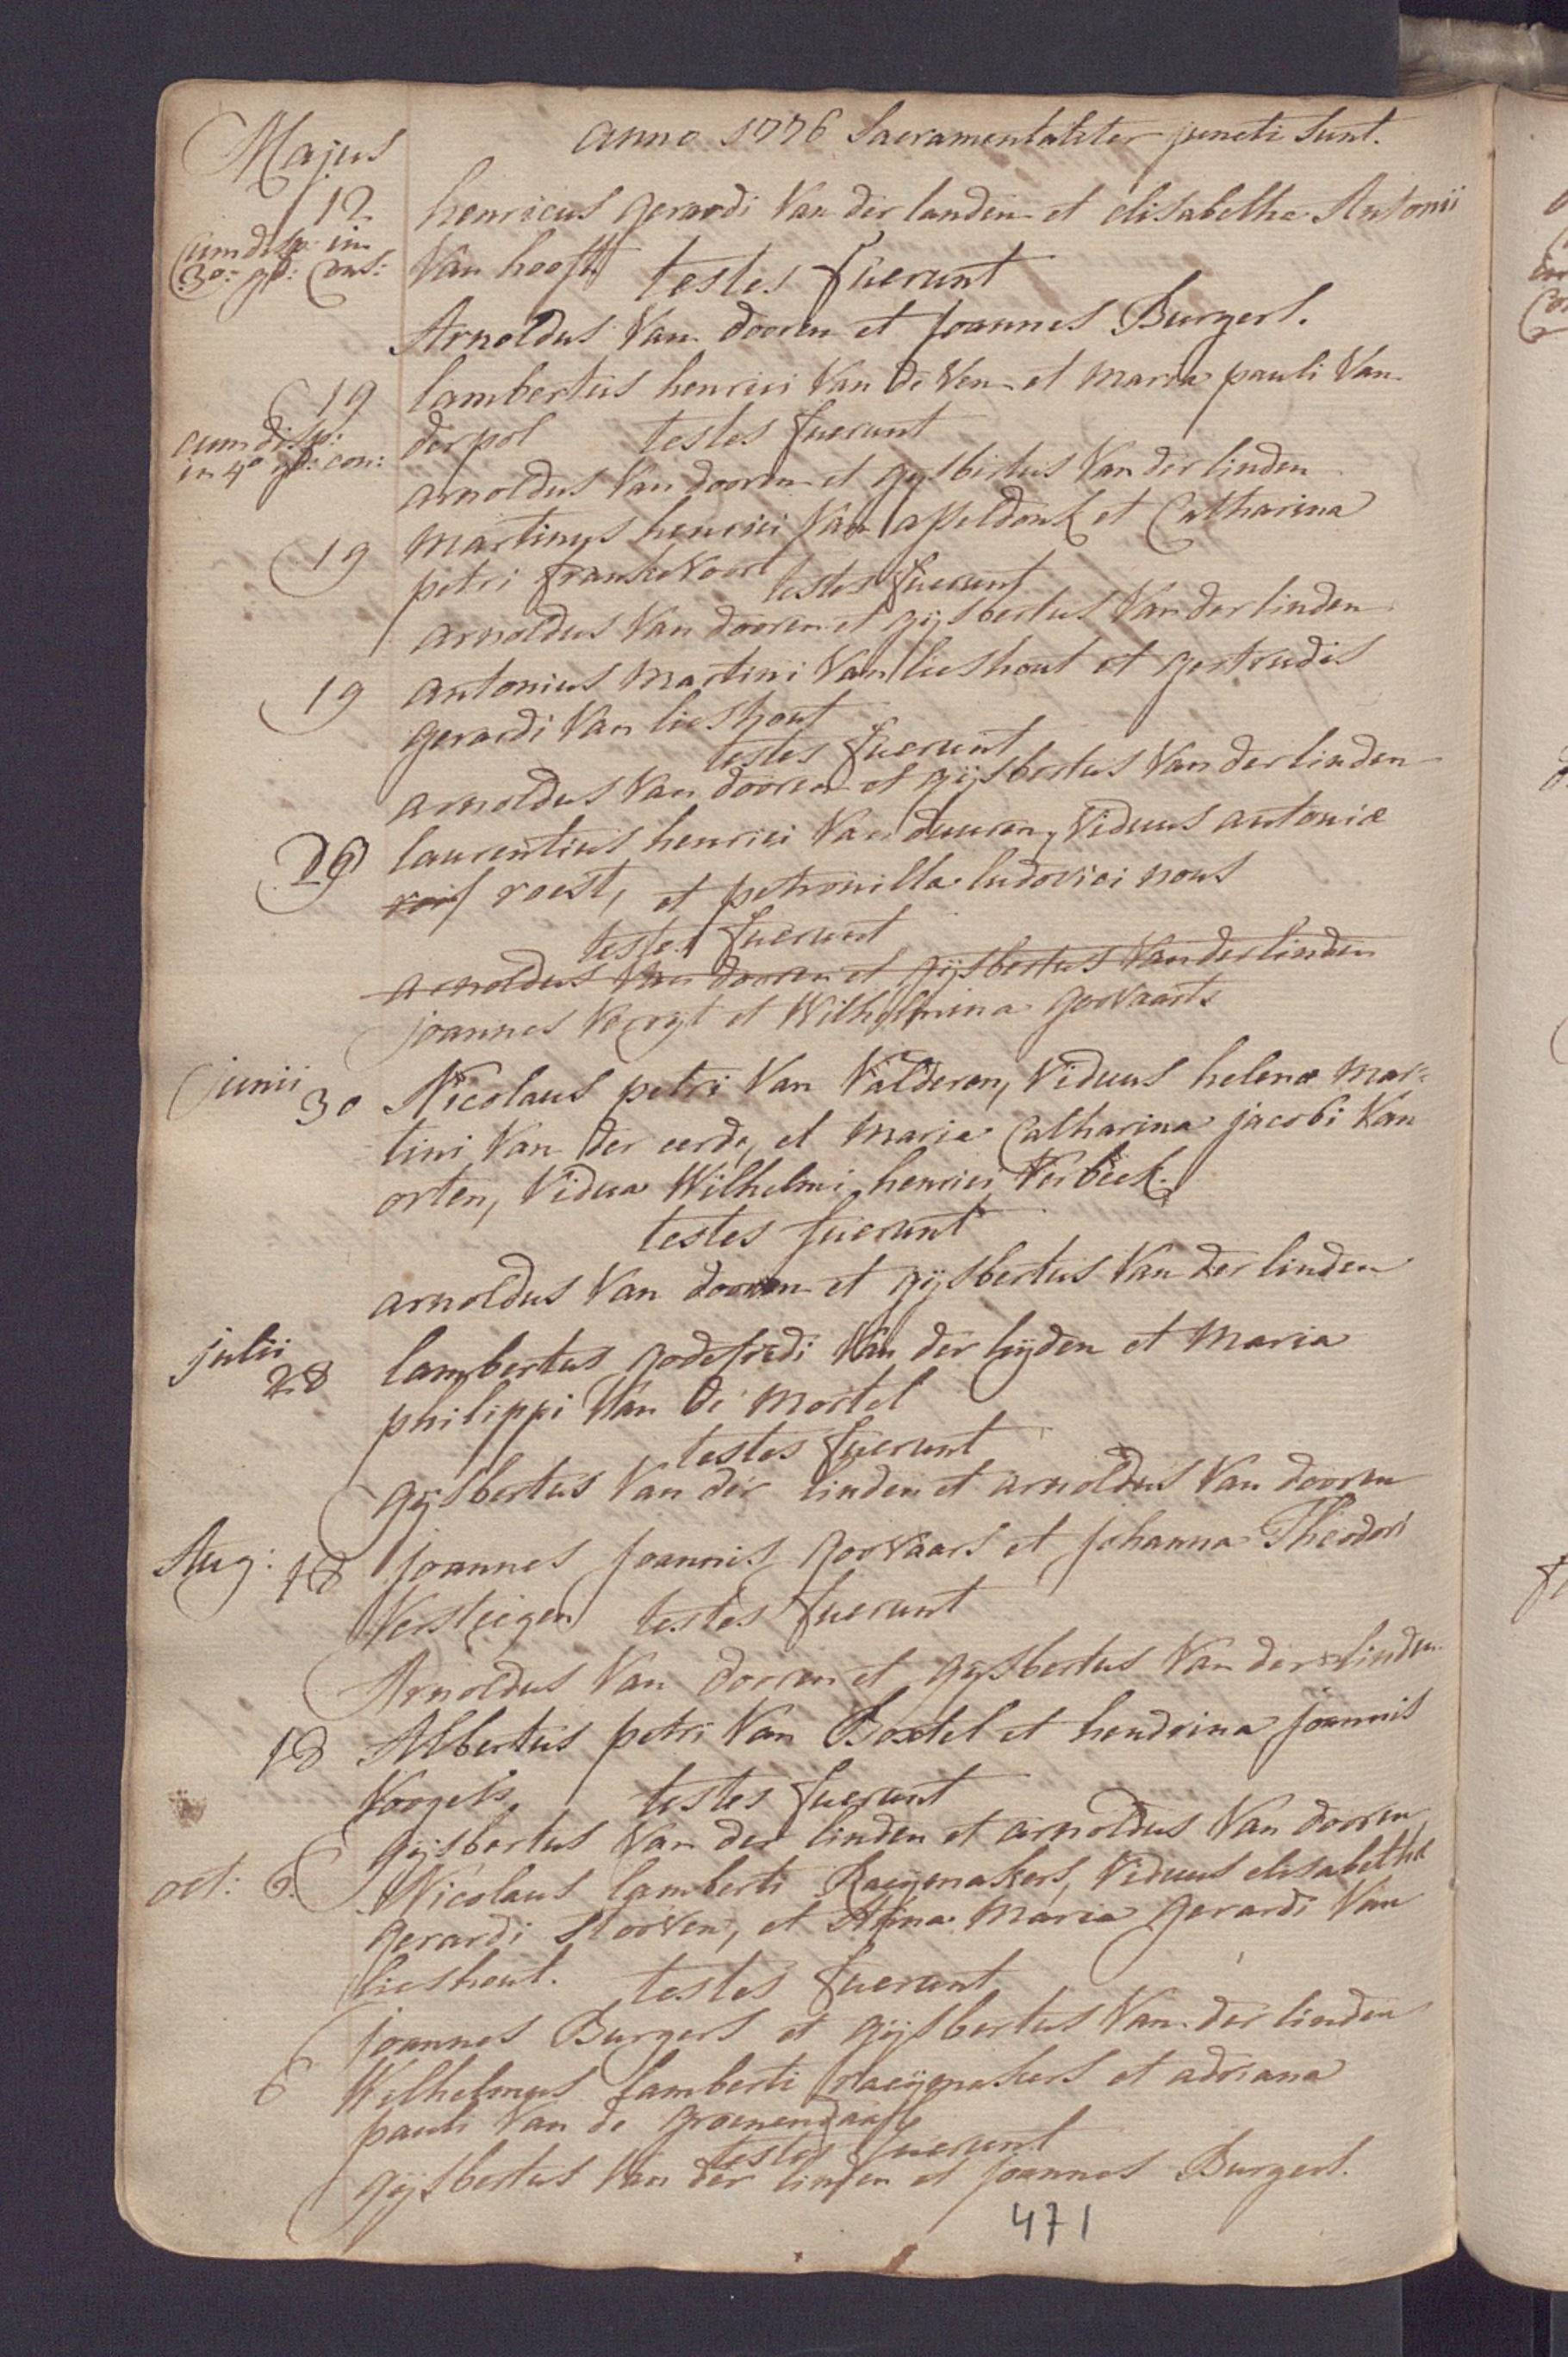 Majus
anno 1776 Sacramentaliter juncti sunt.
12 henricus gerardi Van der landen et elisabetha Antonii
cum disp: in
3o: gr: Cons: Van hooft testes fuerunt
Arnoldus Van dooren et Joannes Burgers.
19 lambertus henrici Van de Ven et Maria pauli Van
cum disp: der pol testes fuerunt
in 4o gr: con: arnoldus Van dooren et gysbertus Van der linden
19 Martinus henrici Van apeldonk et Catharina
petri frankevoort testes fuerunt
arnoldus Van dooren et gijsbertus Van der linden
19 antonius Martini Van lieshout et gertrudis
gerardi Van lieshout
testes fuerunt
arnoldus Van dooren et gijsbertus Van der linden
laurentius henrici Van duuren, Viduus antoniæ
roest, et petronilla ludovici nous
testes fuerunt
arnoldus Van dooren et gijsbertus Van der linden
joannes et Wilhelmina govaarts
junii
30 Nicolaus petri Van Valderen, Viduus helenæ Mar=
tini Van der eerde, et Maria Catharina jacobi Van
orten, Vidua Wilhelmi henrici Verbeek.
testes fuerunt
arnoldus Van dooren et gijsbertus Van der linden
julii
28 lambertus godefridi Van der heijden et Maria
philippi Van de Mortel
testes fuerunt
gijsbertus Van der linden et arnoldus Van dooren
Aug: 18 Joannes Joannis govaars et Johanna Theodori
Versteegen testes fuerunt
Arnoldus Van dooren et gysbertus Van der linden
18 Albertus petri Van Boxtel et hendrina Joannis
Voogels testes fuerunt
gijsbertus Van der linden et arnoldus Van dooren
oct: 6. Nicolaus lamberti Raeijmakers, Viduus elisabethæ
gerardi stooven, et Anna Maria gerardi Van
lieshout. testes fuerunt
Joannes Burgers et gijsbertus Van der linden
6 Wilhelmus lamberti raeijmakers et adriana
pauli Van de groenendaal
testes fuerunt
gijsbertus Van der linden et Joannes Burgers.
471